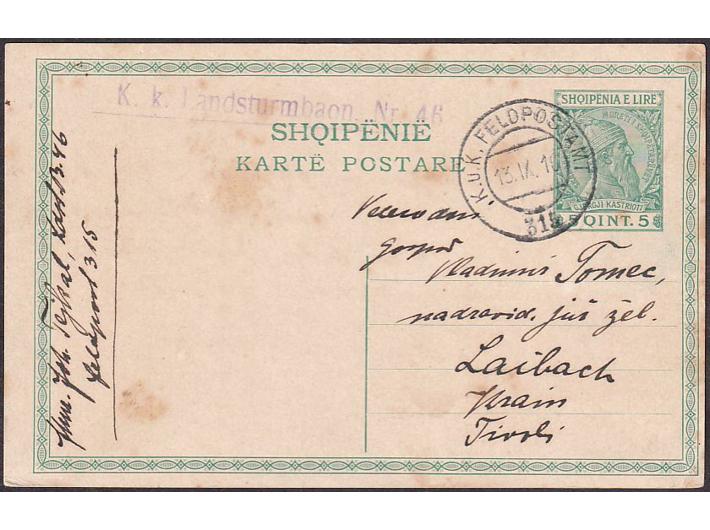 K. k. Landsturmbaon Nr. 46
SHQIPËNIE
KARTË POSTARE
SHQIPËNIA E LIRË
GJERGJI·KASTRIOTI
5 QINT. 5
K.u.K. FELDPOSTAMT
13.IX.16
315
Gospod
Vladimir Tomec,
nadzovid. juž žel.
Laibach
Krain
Tivoli
Joh. Tejkal, Land. B. 46
Feldpost 315